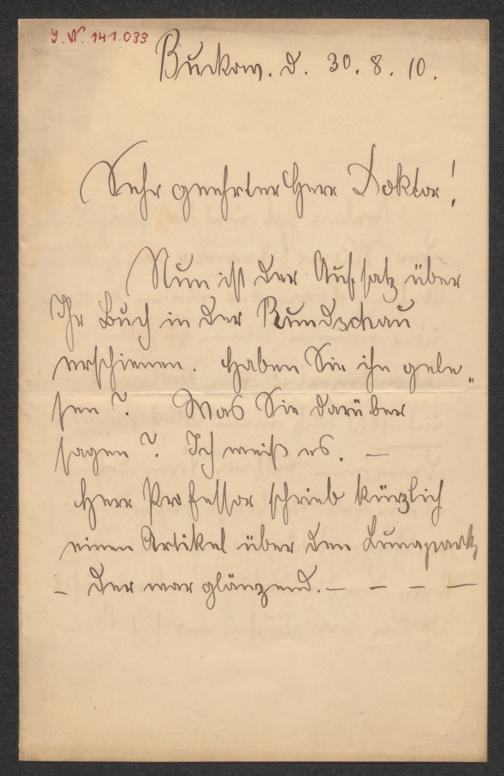 I. N. 141.033
Buckow. d. 30. 8. 10.
Sehr geehrter Herr Doktor!
Nun ist der Aufsatz über
Ihr Buch in der Rundschau
erschienen. Haben Sie ihn gele„
sen? Was Sie darüber
sagen? Ich weiß es. —
Herr Professor schrieb kürzlich
einen Artikel über den Lunapark,
— der war glänzend. — — — —